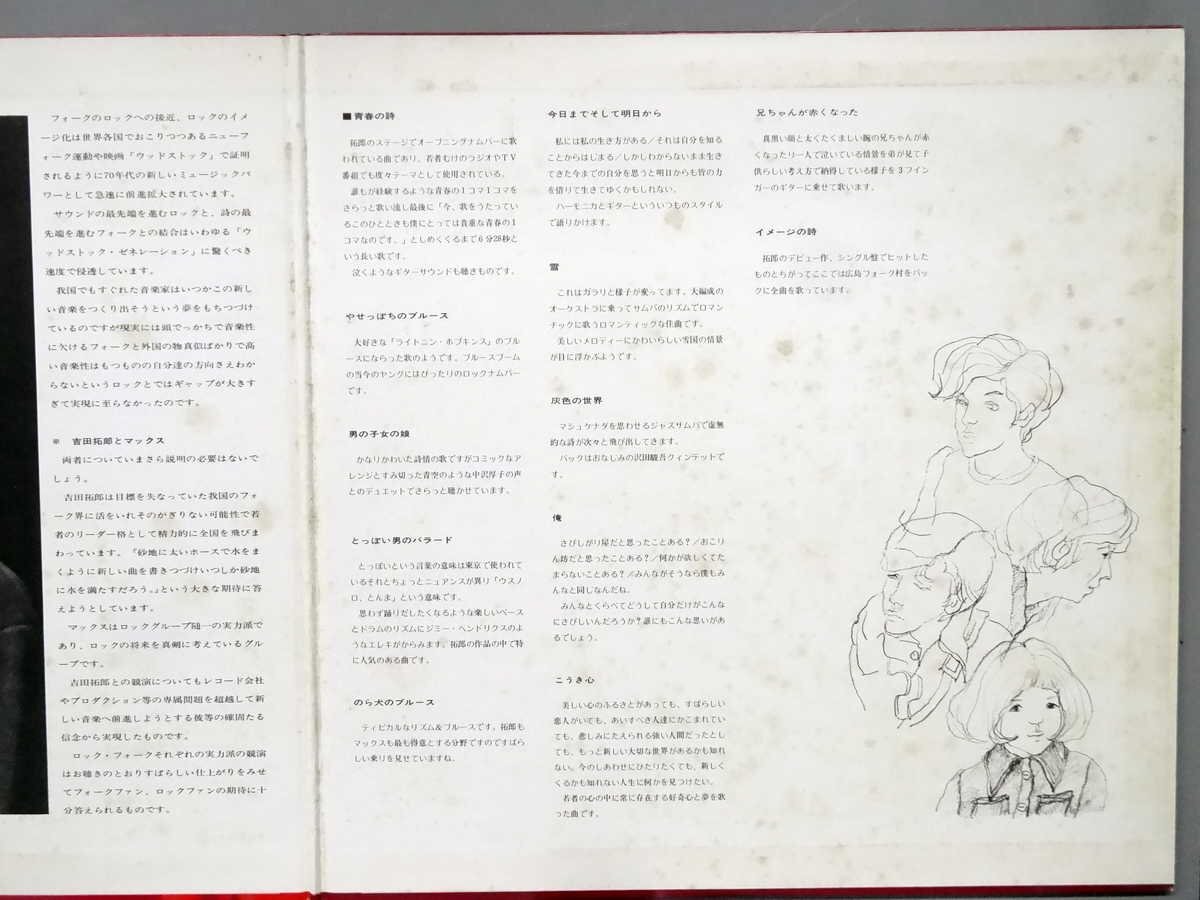 フォークのロックへの接近、ロックのイメ
ージ化は世界各国でおこりつつあるニューフ
ォーク運動や映画「ウッドストック」で証明
されるように70年代の新しいミュージックパ
ワーとして急速に前進拡大されています。
サウンドの最先端を進むロックと、詩の最
先端を進むフォークとの結合はいわゆる「ウ
ッドストック・ゼネレーション」に驚くべき
速度で浸透しています。
我国でもすぐれた音楽家はいつかこの新し
い音楽をつくり出そうという夢をもちつづけ
ているのですが現実には頭でっかちで音楽性
に欠けるフォークと外国の物真似ばかりで高
い音楽性はもつものの自分達の方向さえわか
らないというロックとではギャップが大きす
ぎて実現に至らなかったのです。
※ 吉田拓郎とマックス
両者についていまさら説明の必要はないで
しょう。
吉田拓郎は目標を失なっていた我国のフォ
ーク界に活をいれそのかぎりない可能性で若
者のリーダー格として精力的に全国を飛びま
わっています。『砂地に太いホースで水をま
くように新しい曲を書きつづけいつしか砂地
に水を満たすだろう。』という大きな期待に答
えようとしています。
マックスはロックグループ随一の実力派で
あり、ロックの将来を真剣に考えているグル
ープです。
吉田拓郎との競演についてもレコード会社
やプロダクション等の専属問題を超越して新
しい音楽へ前進しようとする彼等の確固たる
信念から実現したものです。
ロック・フォークそれぞれの実力派の競演
はお聴きのとおりすばらしい仕上がりをみせ
てフォークファン、ロックファンの期待に十
分答えられるものです。
■青春の詩
拓郎のステージでオープニングナムバーに歌
われている曲であり、若者むけのラジオやTV
番組でも度々テーマとして使用されている。
誰もが経験するような青春の1コマ1コマを
さらっと歌い流し最後に「今、歌をうたってい
るこのひとときも僕にとっては貴重な青春の1
コマなのです。」としめくくるまで6分28秒と
いう長い歌です。
泣くようなギターサウンドも聴きものです。
やせっぽちのブルース
大好きな「ライトニン・ホプキンス」のブル
ースにならった歌のようです。ブルースブーム
の当今のヤングにはぴったりのロックナムバー
です。
男の子女の娘
かなりかわいた詩情の歌ですがコミックなア
レンジとすみ切った青空のような中沢厚子の声
とのデュエットでさらっと聴かせています。
とっぽい男のバラード
とっぽいという言葉の意味は東京で使われて
いるそれとちょっとニュアンスが異り「ウスノ
ロ、とんま」という意味です。
思わず踊りだしたくなるような楽しいベース
とドラムのリズムにジミー・ヘンドリクスのよ
うなエレキがからみます。拓郎の作品の中で特
に人気のある曲です。
のら犬のブルース
ティピカルなリズム＆ブルースです。拓郎も
マックスも最も得意とする分野ですのですばら
しい乗りを見せていますね。
今日までそして明日から
私には私の生き方がある／それは自分を知る
ことからはじまる／しかしわからないまま生き
てきた今までの自分を思うと明日からも皆の力
を借りて生きてゆくかもしれない。
ハーモニカとギターといういつものスタイル
で語りかけます。
雪
これはガラリと様子が変ってます。大編成の
オーケストラに乗ってサムバのリズムでロマン
チックに歌うロマンティックな佳曲です。
美しいメロディーにかわいらしい雪国の情景
が目に浮かぶようです。
灰色の世界
マシュケナダを思わせるジャズサムバで虚無
的な詩が次々と飛び出してきます。
バックはおなじみの沢田駿吾クィンテットで
す。
俺
さびしがり屋だと思ったことある？／おこり
ん坊だと思ったことある？／何かが欲しくてた
まらないことある？／みんながそうなら僕もみ
んなと同じなんだね。
みんなとくらべてどうして自分だけがこんな
にさびしいんだろうか？誰にもこんな思いがあ
るでしょう。
こうき心
美しい心のふるさとがあっても、すばらしい
恋人がいても、あいすべき人達にかこまれてい
ても、悲しみにたえられる強い人間だったとし
ても、もっと新しい大切な世界があるかも知れ
ない。今のしあわせにひたりたくても、新しく
くるかも知れない人生に何かを見つけたい。
若者の心の中に常に存在する好奇心と夢を歌
った曲です。
兄ちゃんが赤くなった
真黒い顔と太くたくましい腕の兄ちゃんが赤
くなったり一人で泣いている情景を弟が見て子
供らしい考え方で納得している様子を3フイン
ガーのギターに乗せて歌います。
イメージの詩
拓郎のデビュー作、シングル盤でヒットした
ものとちがってここでは広島フォーク村をバッ
クに全曲を歌っています。